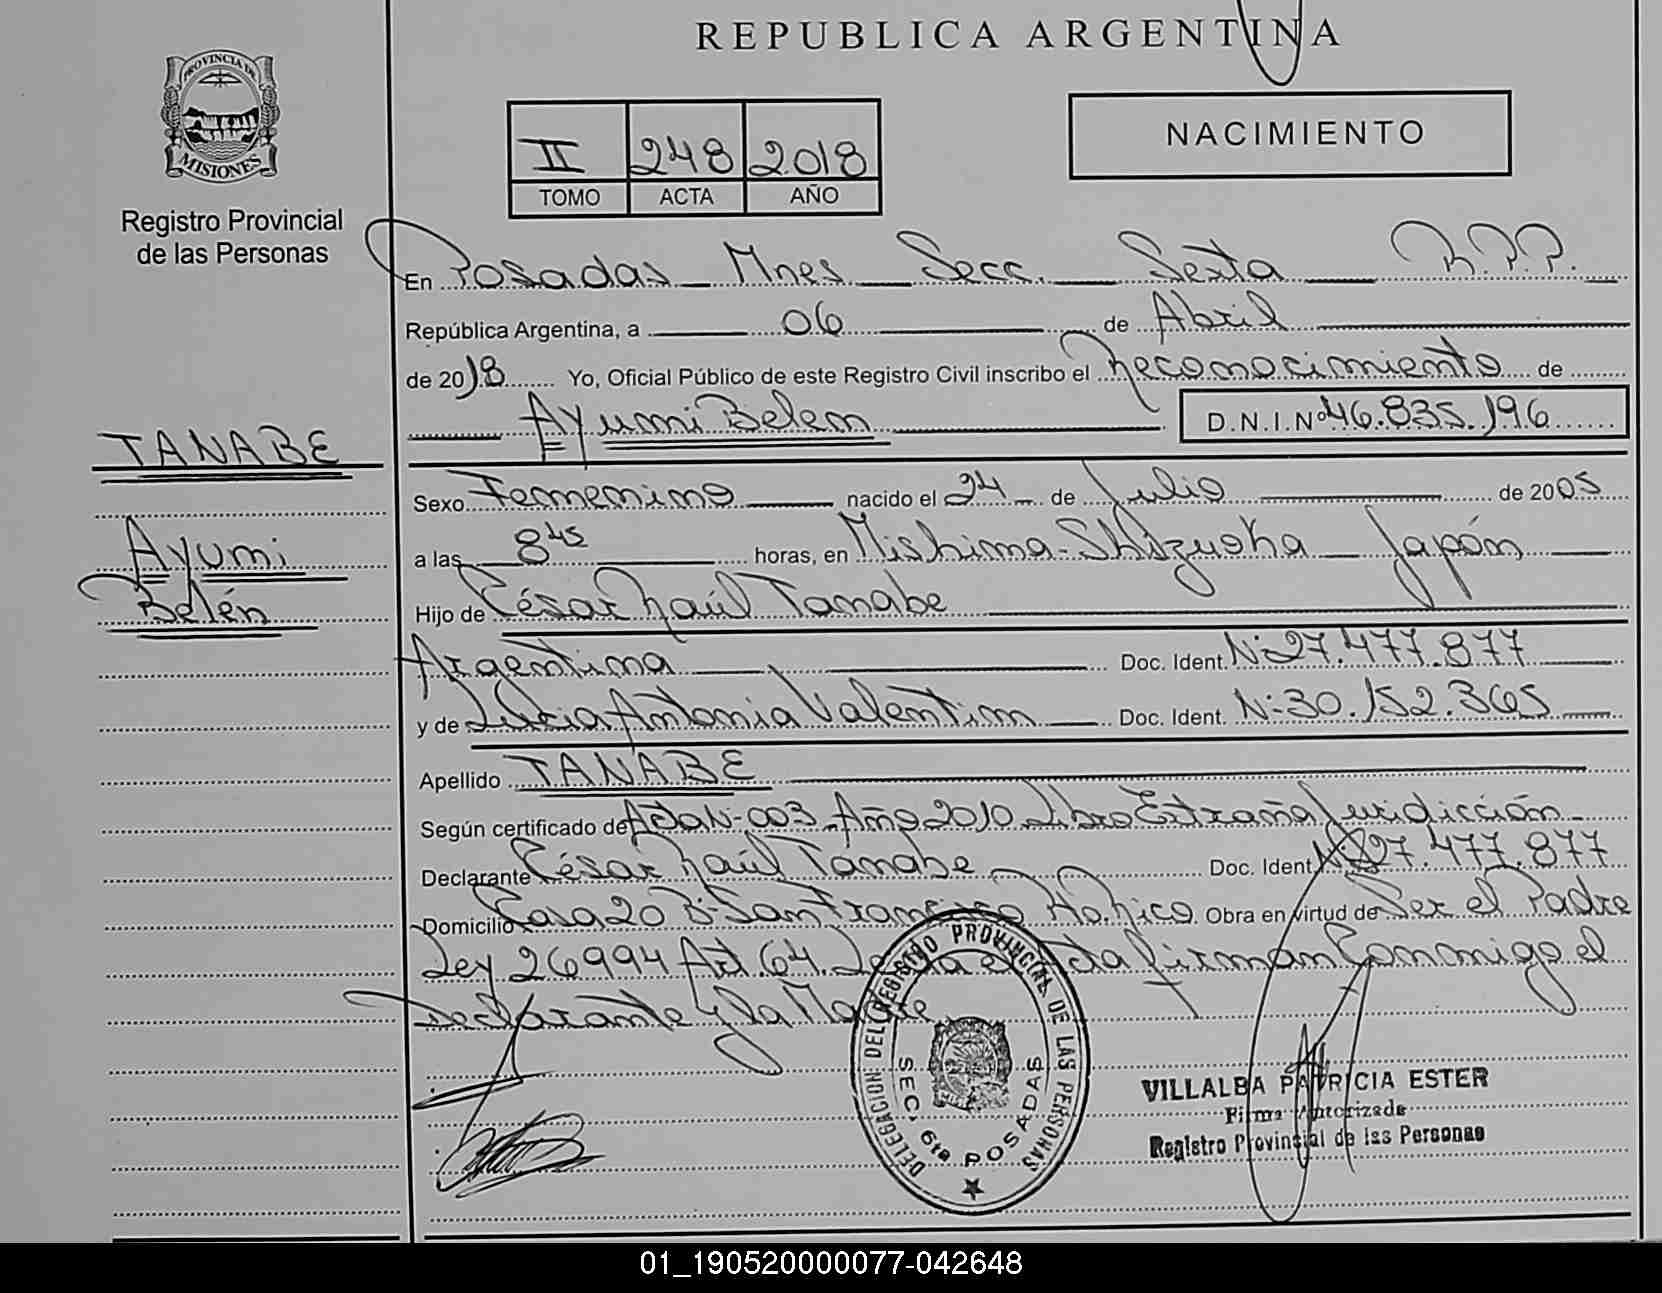 REPUBLICA ARGENTINA
PROVINCIA DE
MISIONES
Registro Provincial
de las Personas
II 248 2018
TOMO ACTA AÑO
NACIMIENTO
En Posadas Mnes Secc. Sexta R.P.P.
República Argentina, a 06 de Abril
de 2018 Yo, Oficial Público de este Registro Civil inscribo el Reconocimiento de
Ayumi Belem D.N.I.Nº 46.835.196
TANABE
Ayumi
Belén
Sexo Femenino nacido el 24 de Julio de 2005
a las 8 45 horas, en Mishima-Shizuoka Japón
Hijo de César Raúl Tanabe
Argentina Doc. Ident. Nº 27.477.877
y de Lilcia Antonia Valentim Doc. Ident. Nº 30.152.365
Apellido TANABE
Según certificado de Acta Nº 003 Año 2010 Libro Extraña Juridicción
Declarante César Raúl Tanabe Doc. Ident. Nº 27.477.877
Domicilio Casa 20 Bº San Francisco Obra en virtud de Ser el Padre
Ley 26994 Art. 64. Leída el Acta firman Conmigo el
Declarante y la Madre
DELEGACION DEL REGISTRO PROVINCIAL DE LAS PERSONAS
SEC. 6ta POSADAS
VILLALBA PATRICIA ESTER
Firma Autorizada
Registro Provincial de las Personas
01_190520000077-042648